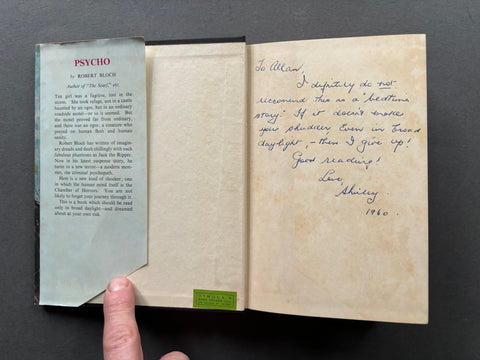 PSYCHO
by ROBERT BLOCH
Author of "The Scarf," etc.
The girl was a fugitive, lost in the
storm. She took refuge, not in a castle
haunted by an ogre, but in an ordinary
roadside motel—or so it seemed. But
the motel proved far from ordinary,
and there was an ogre; a creature who
preyed on human flesh and human
sanity.
Robert Bloch has written of imagin-
ary dreads and flesh chillingly with such
fabulous phantoms as Jack the Ripper.
Now in his latest suspense story, he
turns to a new terror—a modern mon-
ster, the criminal psychopath.
Here is a new kind of shocker; one
in which the human mind itself is the
Chamber of Horrors. You are not
likely to forget your journey through it.
This is a book which should be read
only in broad daylight—and dreamed
about at your own risk.
To Allan,
I definitely do not
reccomend this as a "bedtime
story." If it doesn't make
you shudder even in broad
daylight, - then I give up!
Good reading!
Love
Shirley
1960.